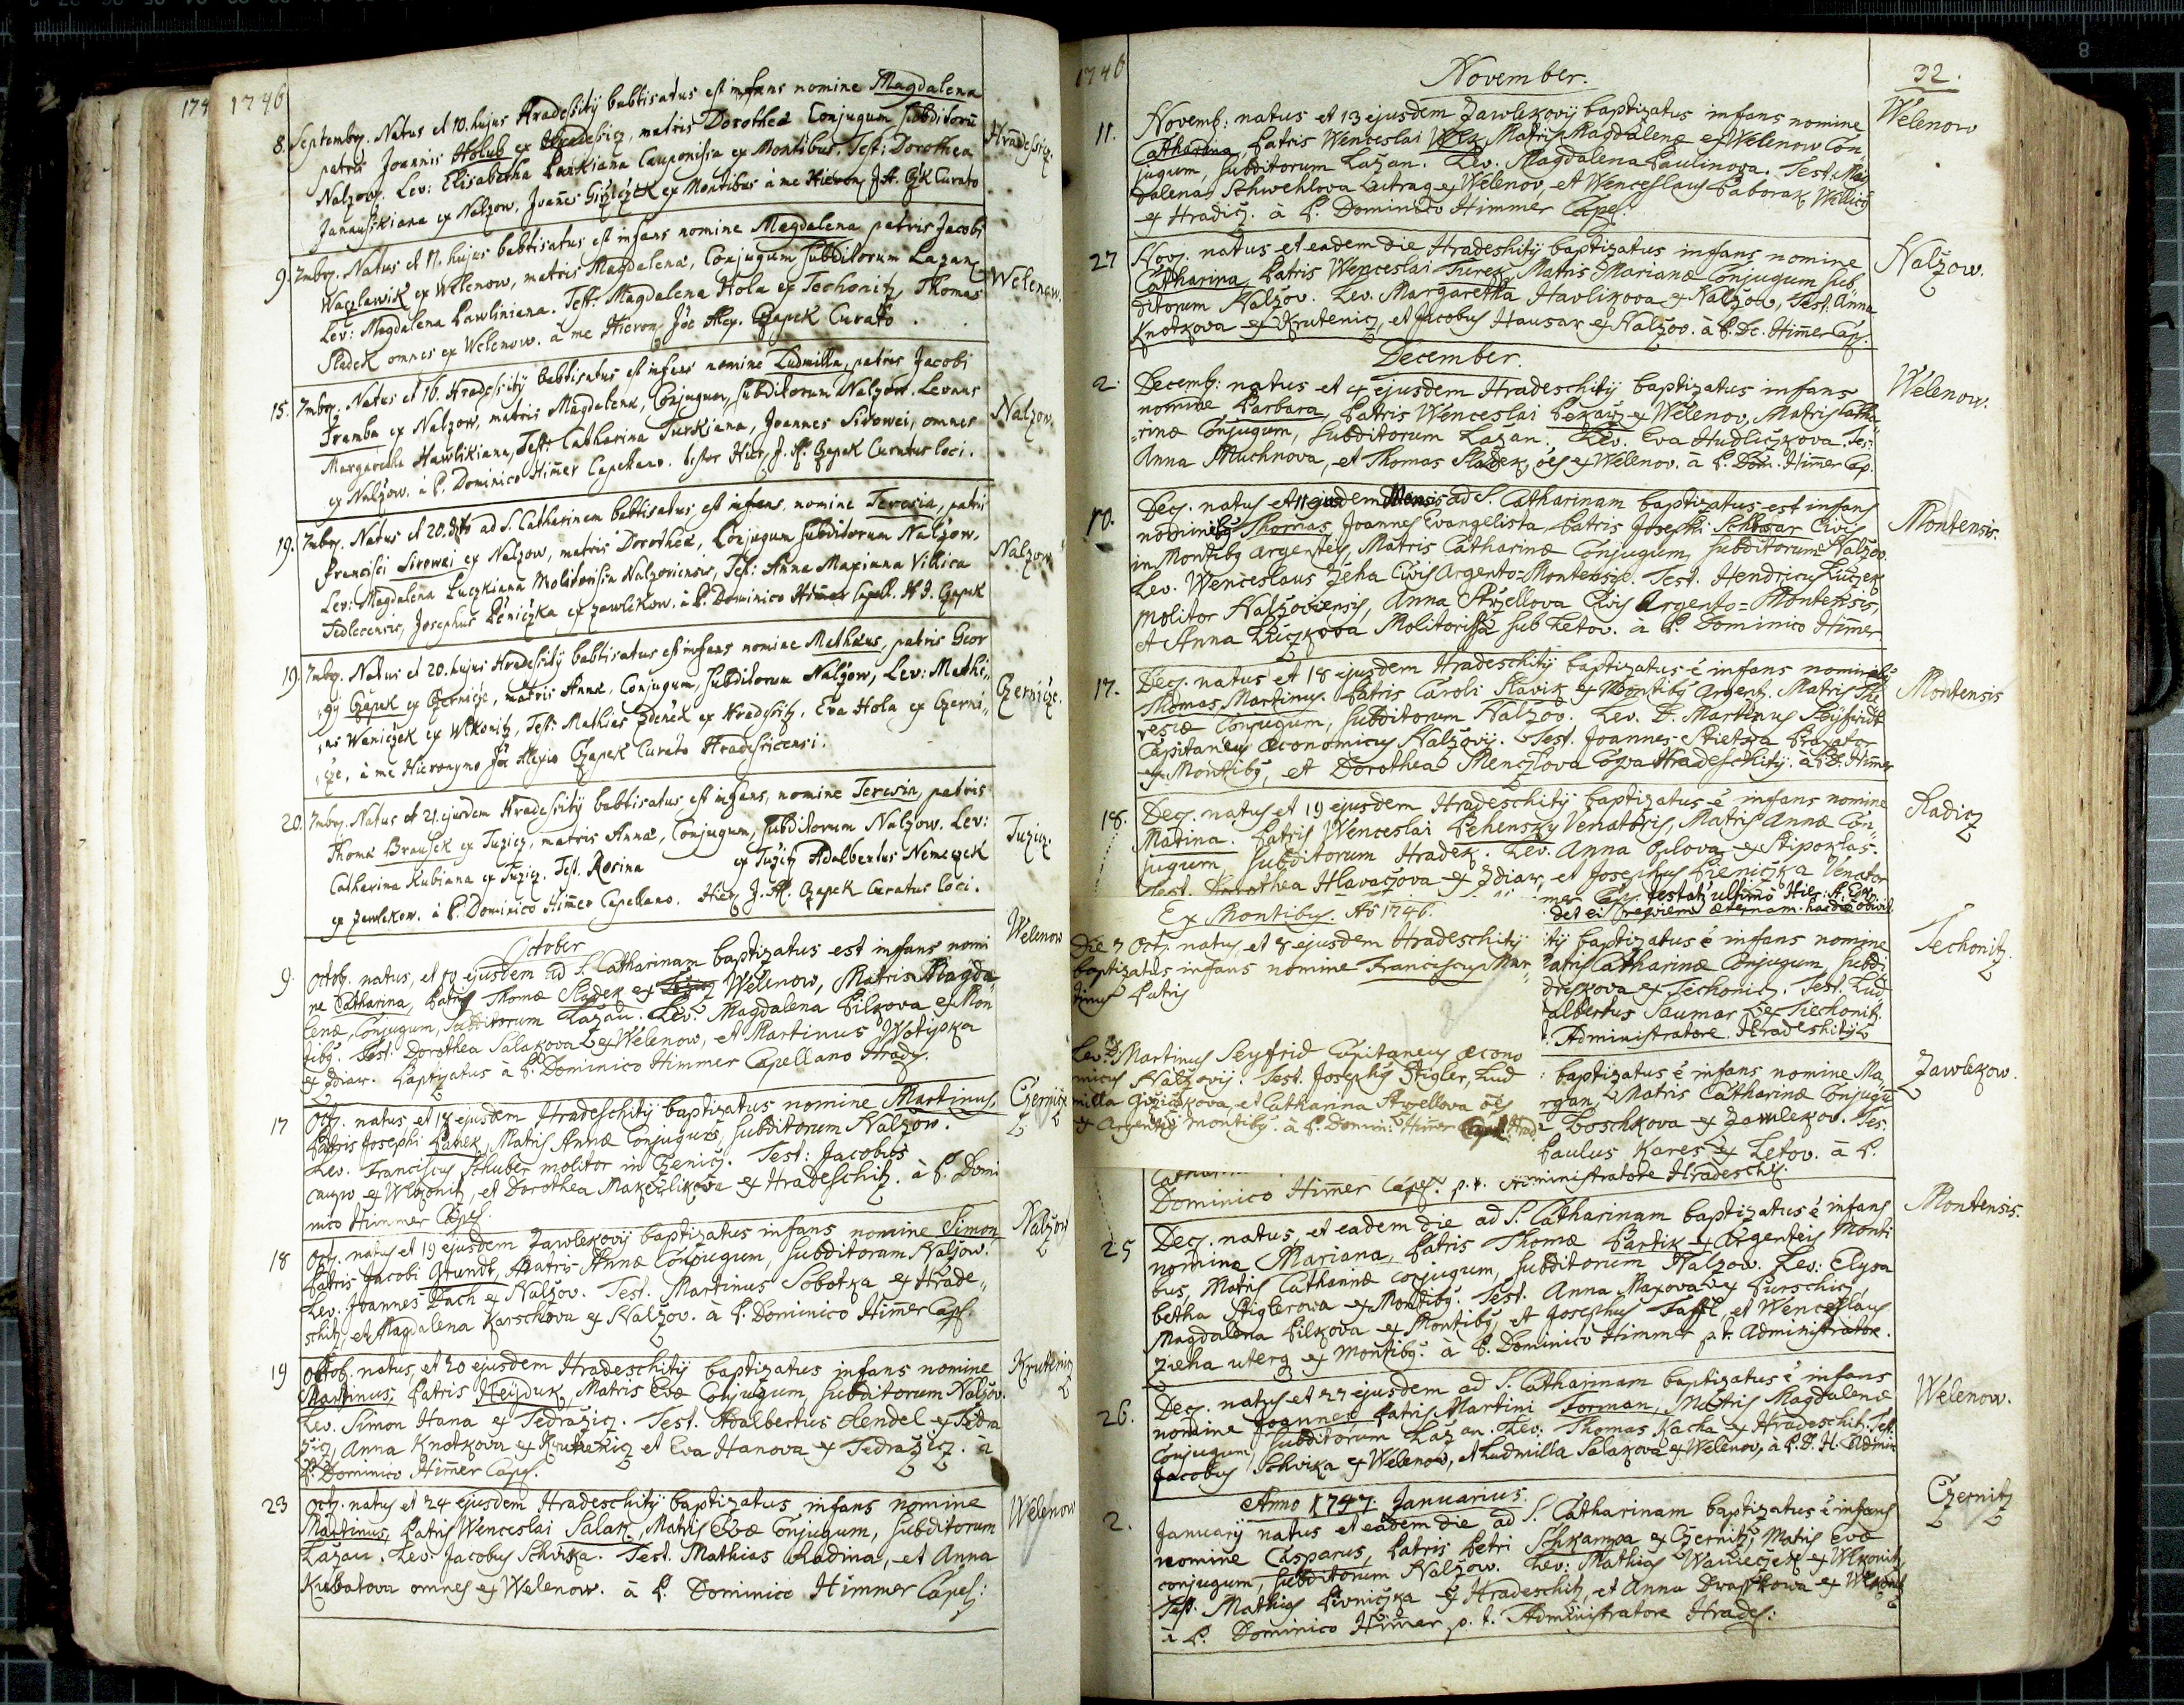 174
1746
8. Septembrs. Natus et 10. hujus Hradessitÿ babtisatus est infans nomine Magdalena
patris Joannis Holub ex Hradessicz, matris Dorotheæ Conjugum Subditorū
Nalzow. Lev: Elisabetha Cauponissa ex Montibus. Test: Dorothea
Janauskiana ex Nalzow, Joañes ex Montibus à me Curato
Hradessicz.
9. 7mbrs. Natus et 11. hujus babtisatus est infans nomine Magdalena patris Jacobi
Waczlawik ex Welenow, matris Magdalenæ, Conjugum Subditorum Lazan
Lev: Magdalena Pawliniana. Test: Magdalena Hola ex Techonitz, Thomas
Sladek omnes ex Welenow. à me Hieron. Joe Alex. Czapek Curato.
Welenow.
15. 7mbrs. Natus et 16. Hradessitÿ babtisatus est infans nomine Ludmilla, patris Jacobi
Tramba ex Nalzow, matris Magdalenæ, Conjugum, Subditorum Nalzow. Levans
Margaretha Hawlikiana, Test: Catharina Turkiana, Joannes Sirowei, omnes
ex Nalzow. à P. Dominico Him̄er Capellano. testor Hier. J. A. Czapek Curatus loci.
Nalzow.
19. 7mbrs. Natus et 20. ad S. Catharinam babtisatus est infans nomine Teresia, patris
Francisci Sirowei ex Nalzow, matris Dorotheæ, Conjugum Subditorum Nalzow.
Lev: Magdalena Luczkiana Molitorissa Nalzoviensis, Test: Anna Maxiana Villica
Tedlecensis, Josephus Pěniczka, ex Zawlekow. à P. Dominico Him̄er Capell. H J. Czapek
Nalzow
19. 7mbrs. Natus et 20. hujus Hradessitÿ babtisatus est infans nomine Mathæus, patris Geor
gÿ Czapek ex Czernicze, matris Annæ, Conjugum, Subditorum Nalzow, Lev: Mathi,,
,,as Waniczek ex Wlkonitz, Test: Mathias Zdeněk ex Hradessitz, Eva Hola ex Czerni,,
,,cze, à me Hieronymo Joe Alexio Czapek Curato Hradessicensi.
Czernicze.
20. 7mbrs. Natus et 21. ejusdem Hradessitÿ babtisatus est infans, nomine Teresia, patris
Thomæ Brausek ex Tuzicz, matris Annæ, Conjugum, Subditorum Nalzow. Lev:
Catharina Kubiana ex Tuzicz. Test. Rosina ex Tuzitz Adalbertus Nemeczek
ex Zawlekow. à P. Dominico Him̄er Capellano. Hier. J. Al. Czapek Curatus loci.
Tuzicz.
October
9. Octob. natus, et 10 ejusdem ad S. Catharinam baptizatus est infans nomi
ne Catharina, Patris Thomæ Sladek ex Welenow, Matris Magda,,
lenæ, Conjugum, Subditorum Lazan. Lev: Magdalena Pilkova ex Mon
tibg. Test. Dorothea Salakova ex Welenow, et Martinus Wotipka
ex Zdiar. Baptizatus à P. Dominico Himmer Capellano Hrads.
Welenow
17 Octz. natus et 18 ejusdem Hradeschitÿ baptizatus nomine Martinus,
Patris Josephi Panek, Matris Annæ Conjugum, Subditorum Nalzow.
Lev. Franciscus Schuber molitor in Czenicz. Test: Jacobus
caupo ex Wlkonitz, et Dorothea Makczlikova ex Hradeschitz. à P. Domi
nico Himmer Capel.
Czernicze
18 Octz. natus et 19 ejusdem Zawlekovÿ baptizatus infans nomine Simon,
Patris Jacobi Grundt, Matris Annæ Conjugum, Subditorum Nalzow.
Lev. Joannes Bach ex Nalzov. Test. Martinus Sobotka ex Hrade,,
schitz, et Magdalena Karschova ex Nalzov. à P. Dominico Him̄er Capl.
Nalzow
19 Octob. natus, et 20 ejusdem Hradeschitÿ baptizatus infans nomine
Martinus, Patris Heÿduk, Matris Evæ Conjugum, Subditorum Nalzov.
Lev. Simon Hana ex Tedrazicz. Test. Adalbertus Hendel ex Tedra
zicz, Anna Knotkova ex Krutenicz et Eva Hanova ex Tedrazicz. à
P. Dominico Him̄er Capel.
Krutenicz
23 Octz. natus et 24 ejusdem Hradeschitÿ baptizatus infans nomine
Martinus, Patris Wenceslai Salak, Matris Evæ Conjugum, Subditorum
Lazan. Lev: Jacobus Schviza. Test. Mathias Radina, et Anna
Kubatova omnes ex Welenow. à P. Dominico Himmer Capel:
Welenow
1746
November.
32.
11. Novemb: natus et 13 ejusdem Zawlekovÿ baptizatus infans nomine
Catharina, Patris Wenceslai Matris Magdalenæ ex Welenow Con,,
jugum, Subditorum Lazan. Lev. Magdalena Paulinova. Test. Mag
dalena Schwehlova utraq ex Welenov, et Wenceslaus Paborak Villicus
ex Hradicz. à P. Dominico Himmer Capel.
Welenow
27 Novz. natus et eadem die Hradeshitÿ baptizatus infans nomine
Catharina, Patris Wenceslai Turek, Matris Marianæ Conjugum Sub,,
ditorum Nalzov. Lev. Margaretha Havlikova ex Nalzow, Test. Anna
Knotkova ex Krutenicz, et Jacobus Hausar ex Nalzov. à P. Do. Him̄er Cap.
Nalzow.
December.
2. Decemb: natus et 4 ejusdem Hradeschitÿ baptizatus infans
nomine Barbara, Patris Wenceslai Pekarz ex Welenov, Matris Catha,,
rinæ Conjugum, Subditorum Lazan. Lev. Eva Hudliczkova. Tes:
Anna Muchnova, et Thomas Sladek, oēs ex Welenov. à P. Dom. Him̄er Cap.
Welenow.
10. Decz. natus et 11 ejusdem Mensis ad S. Catharinam baptizatus est infans
nominibg Thomas Joannes Evangelista, Patris Josephi Civis
in Montibg argenteis, Matris Catharinæ Conjugum, Subditorum Nalzov.
Lev. Wenceslaus Zeha Civis Argento=Montensis. Test. Hendricus Luczek
molitor Nalzoviensis, Anna Strzellova Civis Argento=Montensis,
et Anna Luczkova Molitorissa sub Letov. à P. Dominico Him̄er
Montensis.
17. Decz. natus et 18 ejusdem Hradeschitÿ baptizatus ē infans nominibg
Thomas Martinus. Patris Caroli Slavik ex Montibg Argent. Matris The
resiæ Conjugum, Subditorum Nalzov. Lev. D. Martinus Seÿfridt
Capitaneus œconomicus Nalzovÿ. Test. Joannes
ex Montibg, et Dorothea Menczlova Hradeschitÿ. à P. D. Him̄er
Montensis
18. Decz. natus et 19 ejusdem Hradeschitÿ baptizatus ē infans nomine
Matina. Patris Wenceslai Venatoris, Matris Annæ Con,,
jugum Subditorum Hradek. Lev. Anna ex Stipoklas.
Test. Dorothea Hlavaczova ex Zdiar, et Josephus Pieniczka Venator
mer Cap. testatz ultimô Hier. A. Czap.
det ei requiem æternam. hac die obiit.
Radicz
Ex Montibus. Aō 1746.
Die 7 Octz. natus, et 8 ejusdem Hradeschitÿ
baptizatus infans nomine Franciscus Mar
tinus Patris
Lev. D. Martinus Seyfrid Capitaneus œcono
micus Nalzovÿ. Test. Josephus Stigler, Lud
milla et Catharina Strzellova oēs
ex Argenteis montibg. à P. Domin: Him̄er Capel. Hrad.
itÿ baptizatus ē infans nomine
Patris Catharinæ Conjugum, Subdi
drskova ex Techonicz. Test. Lud
talbertus Saumar ex Tiechonitz.
t. Administratore Hradeshitÿ
Techonitz.
: baptizatus ē infans nomine Ma,,
rgan, Matris Catharinæ Conjugū
Loschkova ex Zawlekov. Tes.
Paulus Kares ex Letov. à P.
Dominico Him̄er Capel. p. t. Administratore Hradeschit.
Zawlekow.
25 Decz. natus, et eadem die ad S. Catharinam baptizatus ē infans
nomine Mariana, Patris Thomæ Partik ex Argenteis Monti
bus, Matris Catharinæ conjugum, Subditorum Nalzow. Lev: Elysa
betha Stiglerowa ex Montibg. Test. Anna Maxova ex Purschicz,
Magdalena Pilkova ex Montibg, et Josephus Taffl, et Wenceslaus
Zieha uterq ex Montibg. à P. Dominico Himmer p. t. Administratore.
Montensis.
26. Decz. natus et 27 ejusdem ad S. Catharinam baptizatus ē infans
nomine Joannes Patris Martini Forman, Matris Magdalenæ
Conjugum, Subditorum Lazan. Lev: Thomas Kacha ex Hradeschit. Test.
Jacobus Schvika ex Welenow, et Ludmilla Salakova ex Welenov, à P. D. H. Admin
Welenow.
Anno 1747. Januarius.
2. Januarÿ natus et eadem die ad S. Catharinam baptizatus ē infans
nomine Casparus, Patris Petri Schkampa ex Czernitz, Matris Evæ
conjugum, Subditorum Nalzow. Lev: Mathias Wanieczek ex Wlkonitz,
Test. Mathias Pivniczka ex Hradeschitz, et Anna ex Wlkonitz
à P. Dominico Him̄er p. t. Administratore Hrades:
Czernitz